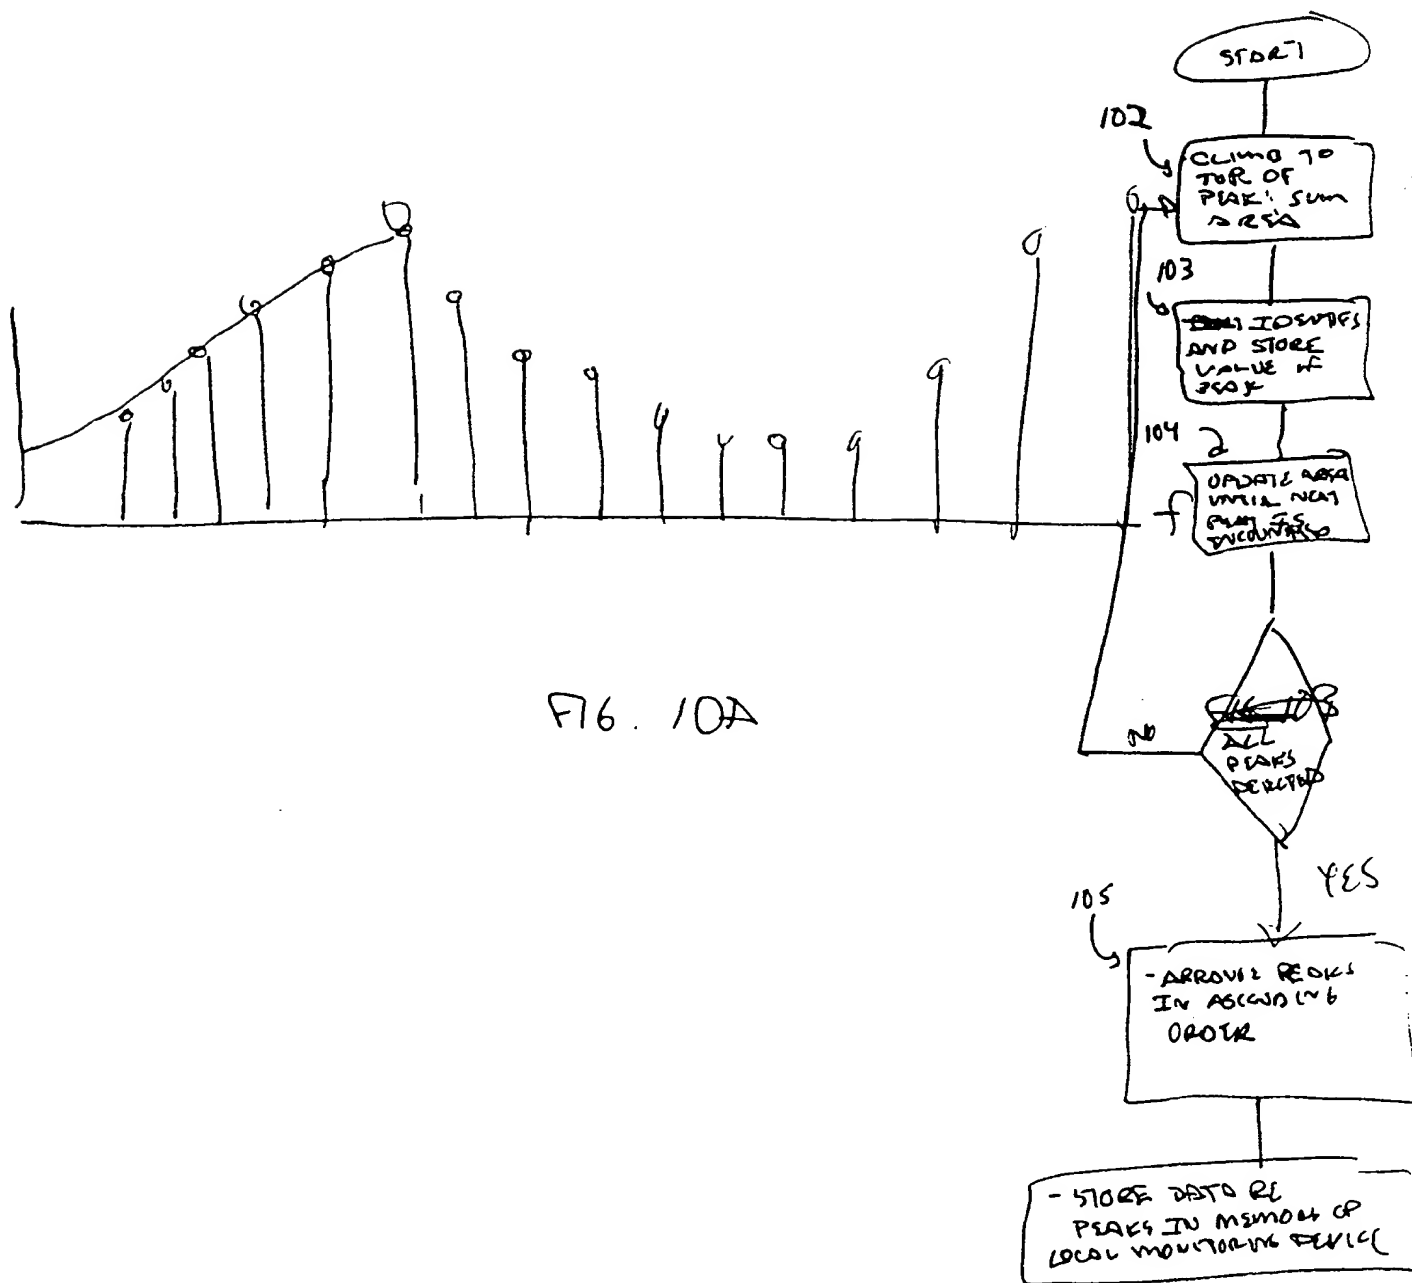 START
102
CLIMB TO
TOP OF
PEAK: SUM
AREA
103
IDENTIFY
AND STORE
VALUE OF
PEAK
104
UPDATE AREA
UNTIL NEXT
PEAK IS
ENCOUNTERED
f
ALL
PEAKS
DETECTED
NO
YES
105
- ARRANGE PEAKS
IN ASCENDING
ORDER
- STORE DATA RE
PEAKS IN MEMORY OF
LOCAL MONITORING DEVICE
FIG. 10A